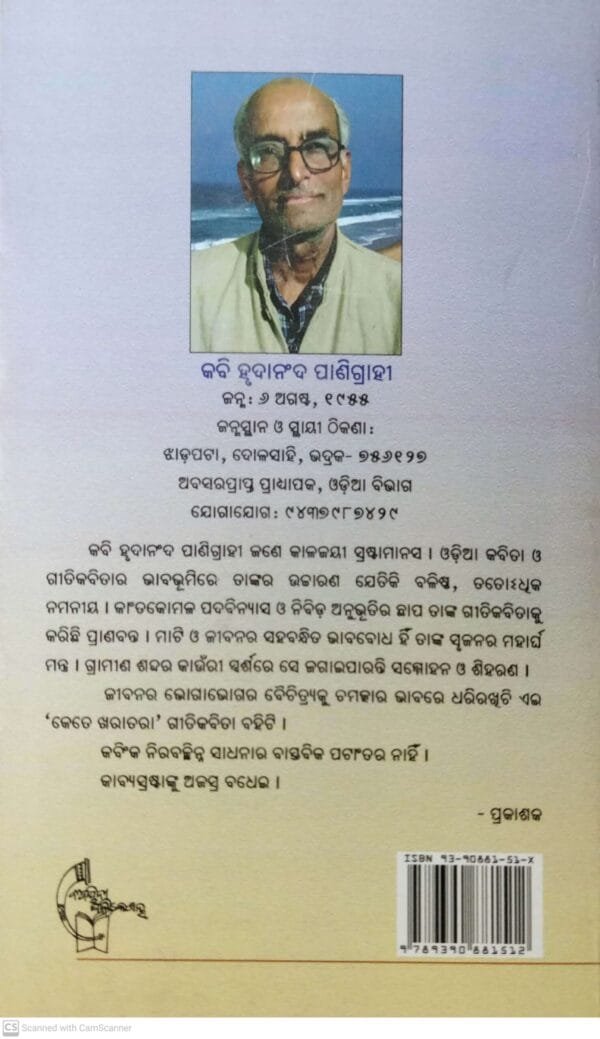 କବି ହୃଦାନଂଦ ପାଣିଗ୍ରାହୀ
ଜନ୍ମ: ୬ ଅଗଷ୍ଟ, ୧୯୫୫
ଜନ୍ମସ୍ଥାନ ଓ ସ୍ଥାୟୀ ଠିକଣା:
ଝାଡ଼ପଟା, ଦୋଳସାହି, ଭଦ୍ରକ- ୭୫୬୧୨୭
ଅବସରପ୍ରାପ୍ତ ପ୍ରାଧ୍ୟାପକ, ଓଡ଼ିଆ ବିଭାଗ
ଯୋଗାଯୋଗ: ୯୪୩୭୯୮୭୪୨୯
କବି ହୃଦାନଂଦ ପାଣିଗ୍ରାହୀ ଜଣେ କାଳଜୟୀ ସ୍ରଷ୍ଟାମାନସ । ଓଡ଼ିଆ କବିତା ଓ
ଗୀତିକବିତାର ଭାବଭୂମିରେ ତାଙ୍କର ଉଚ୍ଚାରଣ ଯେତିକି ବଳିଷ୍ଠ, ତତୋଽଧିକ
ନମନୀୟ । କାଂତକୋମଳ ପଦବିନ୍ୟାସ ଓ ନିବିଡ଼ ଅନୁଭୂତିର ଛାପ ତାଙ୍କ ଗୀତିକବିତାକୁ
କରିଛି ପ୍ରାଣବନ୍ତ । ମାଟି ଓ ଜୀବନର ସହବନ୍ଧିତ ଭାବବୋଧ ହିଁ ତାଙ୍କ ସୃଜନର ମହାର୍ଘ
ମନ୍ତ୍ର । ଗ୍ରାମୀଣ ଶବ୍ଦର କାଉଁରୀ ସ୍ପର୍ଶରେ ସେ ଜଗାଇପାରନ୍ତି ସମ୍ମୋହନ ଓ ଶିହରଣ ।
ଜୀବନର ଭୋଗାଭୋଗର ବୈଚିତ୍ର୍ୟକୁ ଚମତ୍କାର ଭାବରେ ଧରିରଖିଚି ଏଇ
‘କେତେ ଖରାତରା’ ଗୀତିକବିତା ବହିଟି ।
କବିଂକ ନିରବଚ୍ଛିନ୍ନ ସାଧନାର ବାସ୍ତବିକ ପଟାଂତର ନାହିଁ ।
କାବ୍ୟସ୍ରଷ୍ଟାଙ୍କୁ ଅଜସ୍ର ବଧେଇ ।
- ପ୍ରକାଶକ
ISBN 93-90881-51-X
9 789390 881512
CS Scanned with CamScanner